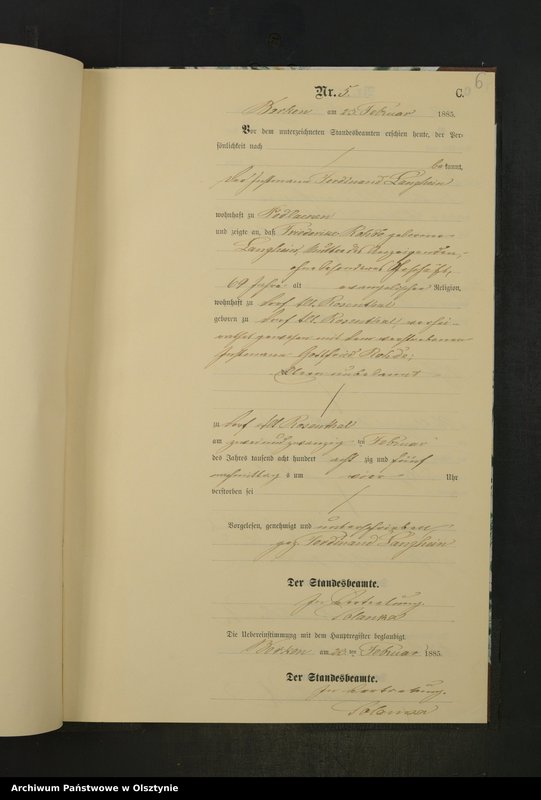 6
Nr. 5. C.
am 23. Februar 1885.
Vor dem unterzeichneten Standesbeamten erschien heute, der Per-
sönlichkeit nach
bekannt,
der Ferdinand Langhein
wohnhaft zu Podlacken
und zeigte an, daß Friederike Rohde geborene
Langhein, Mutter des Anzeigenden,
ohne besonderes Geschäft,
69 Jahre alt evangelischer Religion,
wohnhaft zu Dorf Alt Rosenthal
geboren zu Dorf Alt Rosenthal, verhei-
rathet gewesen mit dem verstorbenen
Gottfried Rohde;
Eltern unbekannt
zu Dorf Alt Rosenthal
am zweiundzwanzig ten Februar
des Jahres tausend acht hundert acht zig und fünf
nachmittag s um vier Uhr
verstorben sei
Vorgelesen, genehmigt und unterschrieben
gez. Ferdinand Langhein
Der Standesbeamte.
In Vertretung
Die Uebereinstimmung mit dem Hauptregister beglaubigt
am ten Februar 1885.
Der Standesbeamte.
In Vertretung.
Archiwum Państwowe w Olsztynie